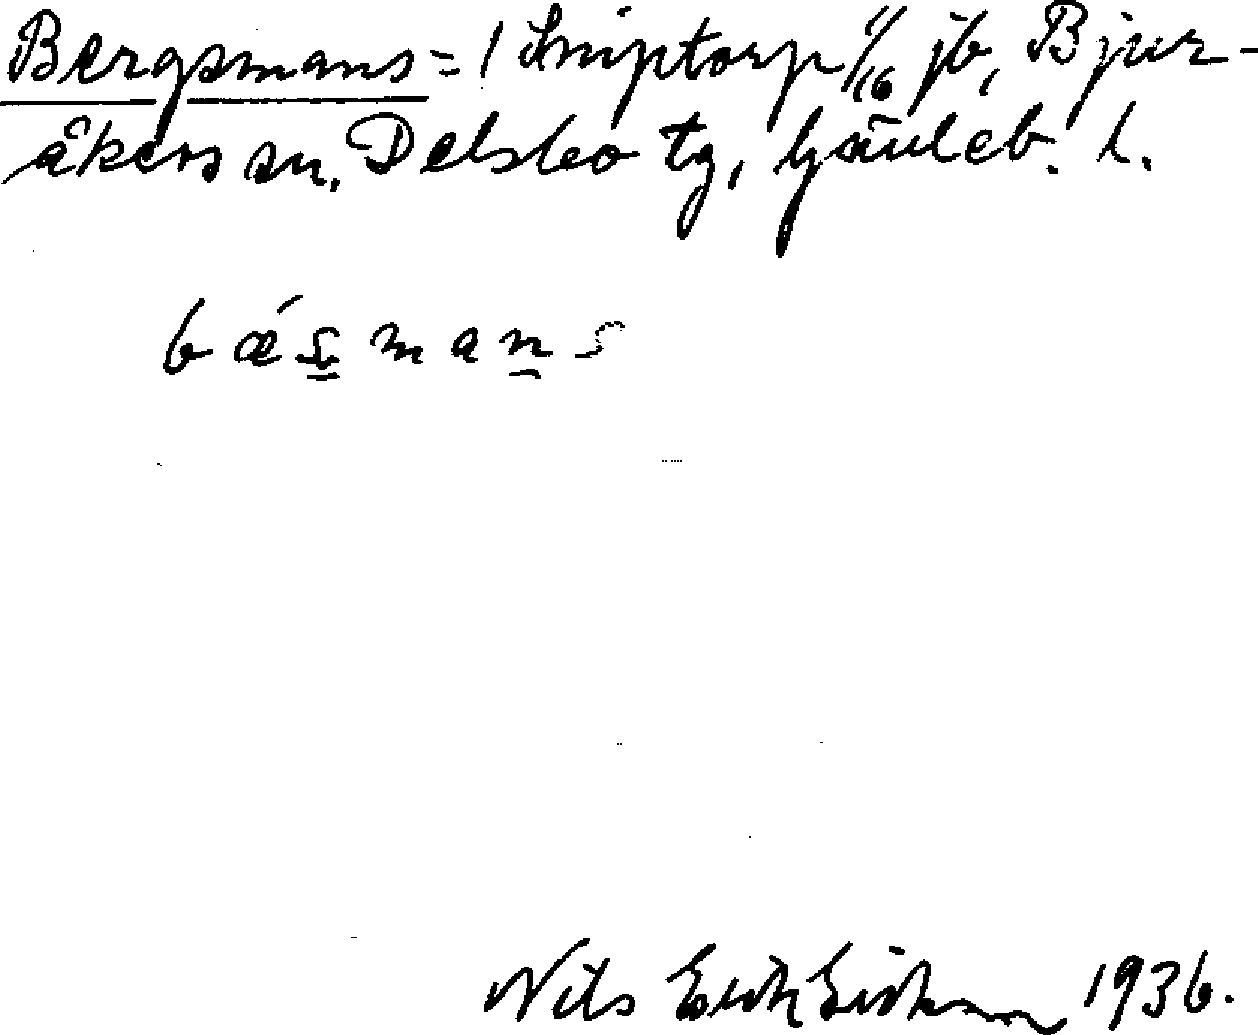 Bergsmans = / Sniptorp 1/16 jb, Bjur-
åkers sn. Delsbo tg, Gävleb. l.
bǽs̳man̲s
Nils Erik 1936.